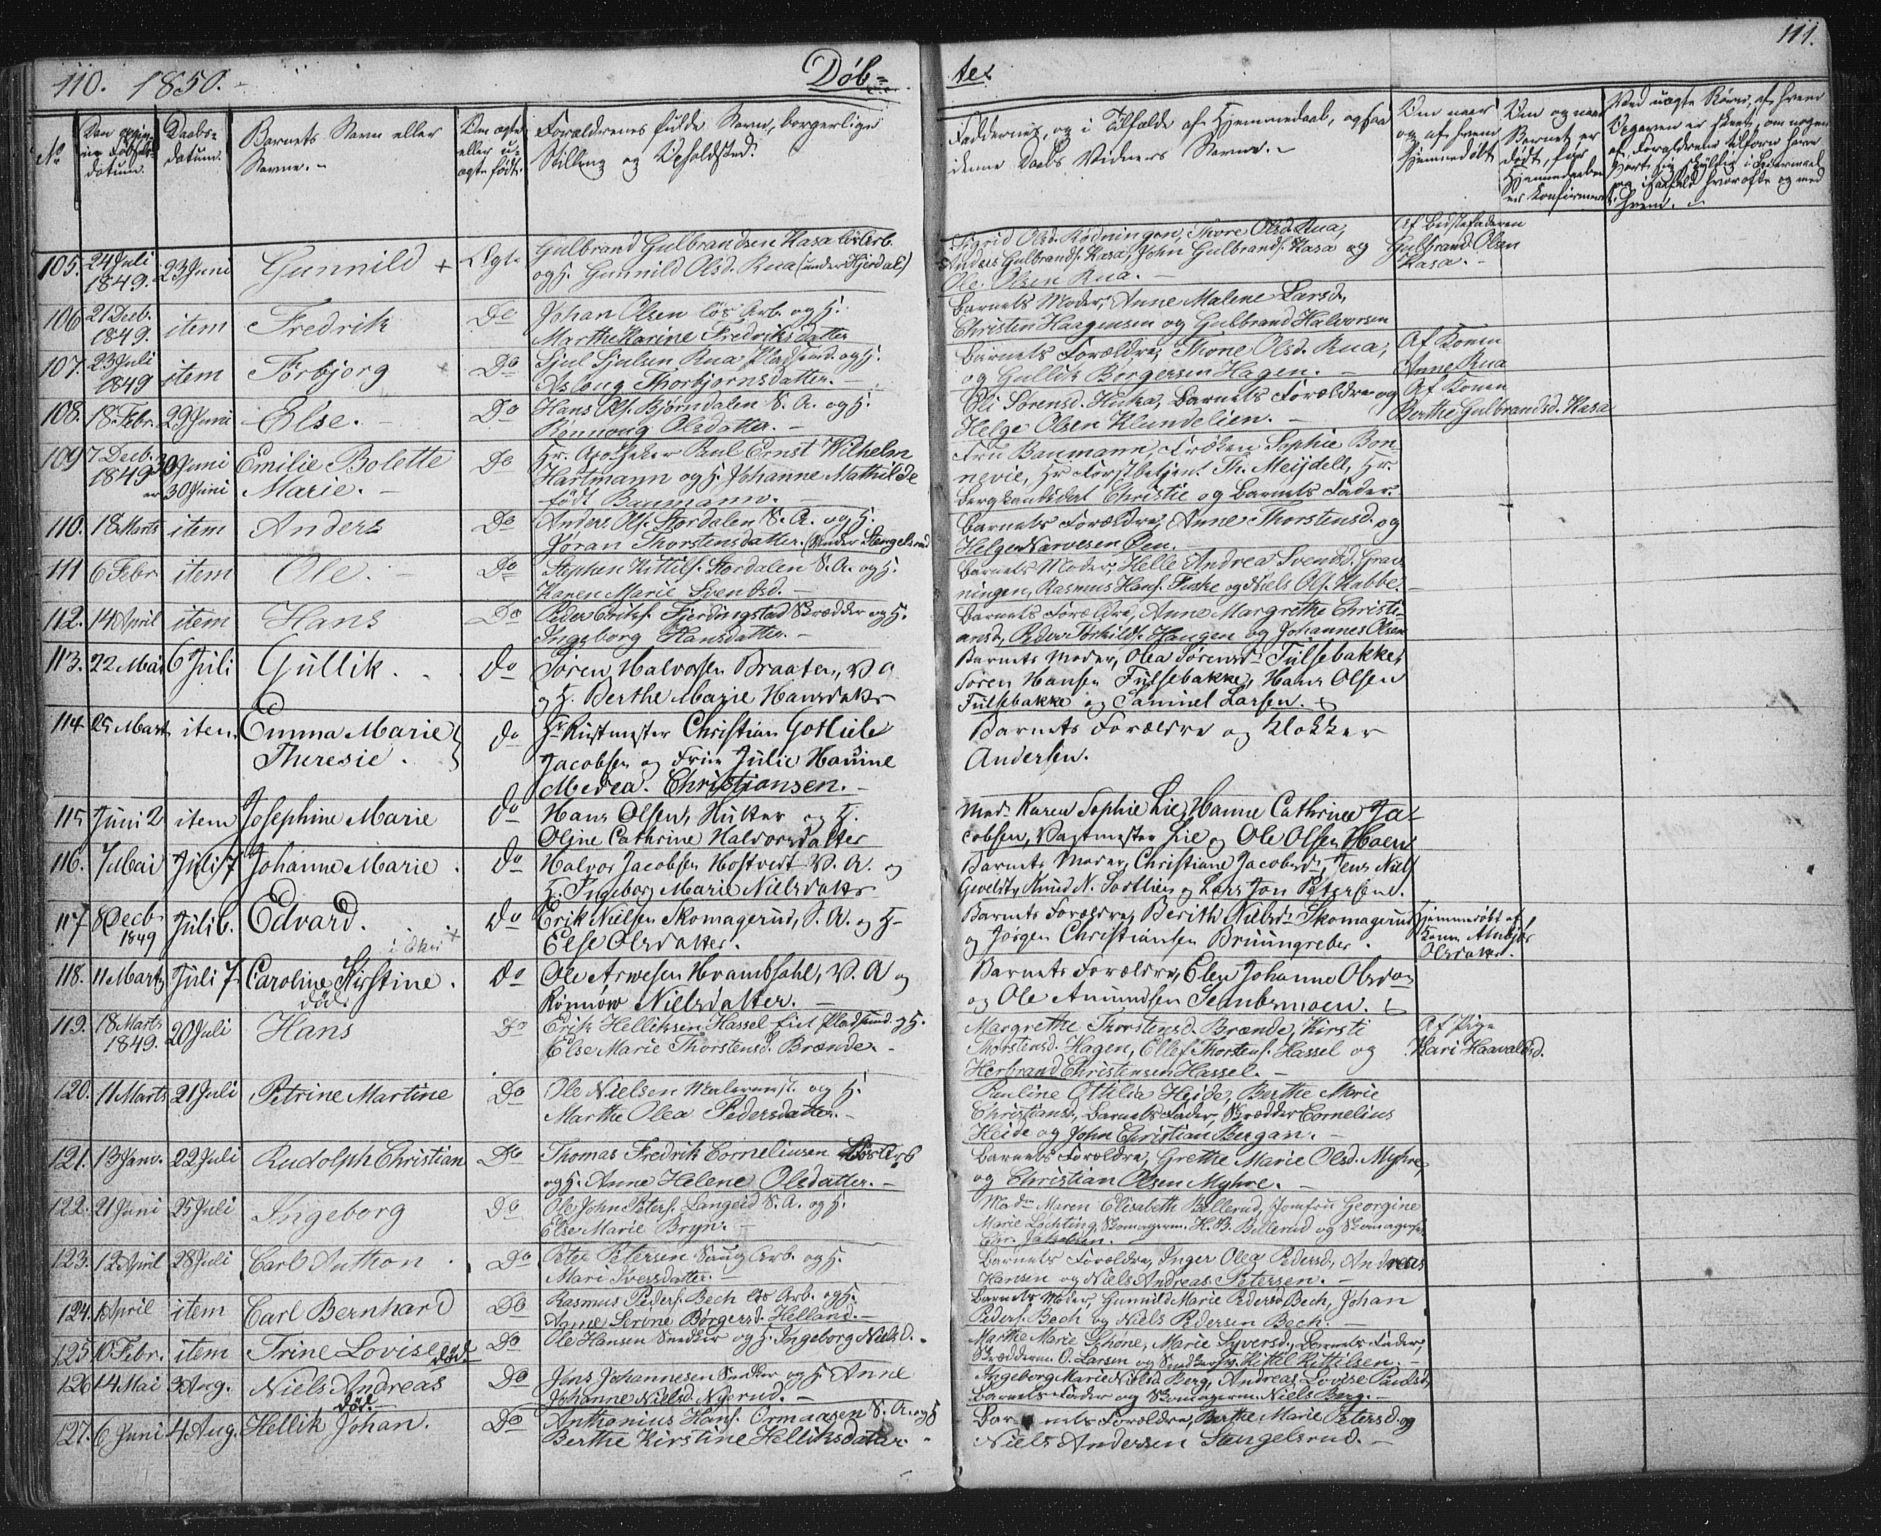 110. 1850. Døb-
te. 111.
No
Den opgiv-
ne Fødsels-
datum.
Daabs-
datum.
Barnets Navn eller
Navne.
Om ægte
eller u-
ægte født.
Forældrenes fulde Navn, borgerlige
Stilling og Opholdsted.
Faddernes, og i Tilfælde af Hjemmedaab, ogsaa
denne Daabs Vidners Navne.
Om naar
og af hvem
hjemmedøbt
Om og naar
Barnet er
dødt, før
Hjemmedaaben
er konfirmeret
105. 24 Juli 1849. 23 Juni Gunnild + Ægte
Gulbrand Gulbrandsen Kasa løs Arb.
og H. Gunnild Olsd. Rua (under Hjerdal)
Sigrid Olsd. Rødningen, Thore Olsd. Rua,
Anders Gulbrands. Kasa, John Gulbrands. Kasa og
Ole Olsen Rua.
Af Bedstefaderen
Gulbrand Olsen
Kasa.
106 21 Decb. 1849. item Fredrik Do
Johan Olsen løs Arb. og H.
Marthe Karine Fredriksdatter
Barnets Moder, Anne Malene Larsd.
Christen Haagensen og Gulbrand Halvorsen
107. 23 Juli 1849 item Torbjorg + Do
Sjul Sjulsen Rua Pladsmd. og H.
Aslaug Thorbjørnsdatter.
Barnets Forældre, Thone Olsd. Rua,
og Gullik Børgersen Hagen.
Af Konen
Anne Rua
108. 18 Febr. 29 Juni Else. Do
Hans Ols. Bjørndalen S. A. og H.
Rønnoug Olsdatter.
Sli Sørensd. Huka, Barnets Forældre og
Helge Olsen Klundelien.
Af Konen
Berthe Gulbrandsd. Kasa
109 7 Decb. 1849 30 Juni Emilie Bolette Do
er 30 Juni Marie.
Hr. Apotheker Paul Ernst Wilhelm
Hartmann og H. Johanne Mathilde
født Baumann.
Fru Baumann, Frøken Sophie Bon-
nevie, Hr Forstbetjent Th. Meijdell, Hr.
Bergkandidat Christie og Barnets Fader.
110. 18 Marts item Anders Do
Anders Ols. Stordalen S. A. og H.
Jøran Thorstensdatter. (Under Stengelsrud
Barnets Forældre, Anne Thorstensd. og
Helge Narvesen Øen.
111 6 Febr. item Ole. Do
Stephan Kittils. Stordalen S. A. og H.
Karen Marie Svendsd.
Barnets Moder, Helle Andrea Svendsd. Grav-
ningen, Rasmus Hans. Fiske og Niels Ols. Stabbe.
112. 14 April item Hans Do
Peder Eriks. Fjerdingstad Skrædder og H.
Ingeborg Hansdatter.
Barnets Forældre, Anne Margrethe Christi-
ansd., Peder Torkilds. Haugen og Johannes Olsen
113. 22 Mai 6 Juli Gullik. Do
Søren Halvorsen Braaten, V. A
og H. Berthe Marie Hansdatter
Barnets Moder, Olea Sørensd. Fulsebakke,
Søren Hansen Fulsebakke, Hans Olsen
Fulsebakke og Samuel Larsen.
114. 25 Marts item. Emma Marie Do
Theresie.
Hr Rustmester Christian Gotlieb
Jacobsen og Frue Julie Hanine
Medea Christiansen.
Barnets Forældre og Klokker
Andersen.
115 Juni 2 item Josephine Marie Do
Hans Olsen, Hutter og H.
Oline Cathrine Halvorsdatter
Mad. Karen Sophie Lie, Hanne Cathrine Ja-
cobsen, Vagtmester Lie og Ole Olsen Moen
116. 7 Mai Juli 7 Johanne Marie Do
Halvor Jacobsen Hostvedt V. A. og
H. Ingeborg Marie Nielsdatter
Barnets Moder, Christiane Jacobsd., Jens Niels
Gevelst, Knud N. Sortlien og Lars Jon Petersen.
117 8 Decb. 1849 Juli 6. Edvard. Do
i Eker +
Erik Nielsen Skomagerud, S. A. og H.
Else Olsdatter.
Barnets Forældre, Berith Nielsd. Skomagerud
og Jørgen Christiansen Bruungreber.
Hjemmedøbt af
Konen Ambjør
Olsdatter.
118. 11 Marts Juli 7. Caroline Kirstine. Do
død.
Ole Arvesen Kvambsahl, V. A og
Rønnow Nielsdatter.
Barnets Forældre, Elen Johanne Olsda.
og Ole Amundsen Sembsmoen.
119. 18 Marts 1849. 20 Juli Hans Do
Erik Helliksen Hassel eiet Pladsmd. og H.
Else Marie Thorstensd. Brænde.
Margrethe Thorstensd. Brænde, Kirsti
Thorstensd. Hagen, Ellef Thorstens. Hassel og
Herbrand Christensen Hassel.
Af Pige
Kari Haavalsd.
120. 11 Marts 21 Juli Petrine Martine Do
Ole Nielsen Malermst. og H.
Marthe Olea Pedersdatter.
Pauline Ottilia Heide, Berthe Marie
Christians., Barnets Fader, Skrædder Cornelius
Heide og John Christian Bergan.
121. 13 Janv. 22 Juli Rudolph Christian Do
Thomas Fredrik Corneliusen Løs Arb
og H. Anne Helene Olsdatter.
Barnets Forældre, Grethe Marie Olsd. Myhre,
og Christian Olsen Myhre.
122. 21 Juni 25 Juli Ingeborg Do
Ole John Peters. Langeid S. A. og H.
Else Marie Bryn.
Madm Maren Elisabeth Billerud, Jomfru Georgine
Marie Løchting, Skomagerm. H. B. Billerud og Skomagersv.
Chr. Jakobsen.
123. 12 April 28 Juli Carl Anthon. Do
Peter Petersen Saug Arb. og H.
Mari Iversdatter.
Barnets Forældre, Inger Olea Pedersd, Andreas
Hansen og Niels Andreas Petersen.
124. April item Carl Bernhard Do
Rasmus Peders. Bech løs Arb. og H.
Anne Serine Børgersd. Helland.
Barnets Moder, Gunnild Marie Pedersd Bech, Johan
Peders. Bech og Niels Pedersen Bech.
125. 10 Febr. item Trine Lovise død. Do
Ole Hansen Snedker og H. Ingeborg Nielsd.
Marthe Marie Schøne, Marie Syversd., Barnets Fader,
Skrædderm. O. Larsen og Snedkersv. Kittel Kittilsen.
126 14 Mai 3 Aug. Niels Andreas Do
død.
Jens Johannesen Snedker og H Anne
Johanne Nielsd. Nyerud.
Ingeborg Marie Nielsd Berg, Andreas Lovise Paulsd,
Barnets Fader og Skomagerm. Niels Berg.
127. 6 Juni 4 Aug. Hellik Johan. Do
Anthonius Hans. Ormaasen S. A. og H
Berthe Kirstine Helliksdatter.
Barnets Forældre, Berthe Marie Petersd. og
Niels Andersen Sangelsrud.